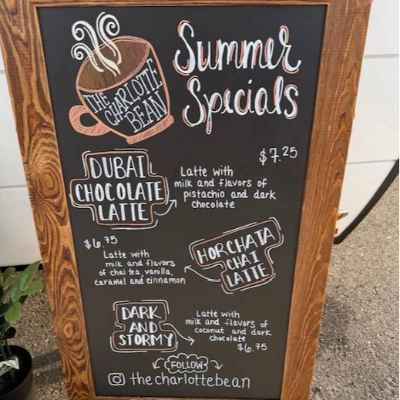 THE
CHARLOTTE
BEAN
Summer
Specials
$7.25
DUBAI
CHOCOLATE
LATTE
Latte with
milk and flavors of
pistachio and dark
chocolate
$6.75
Latte with
milk and flavors
of chai tea, vanilla,
caramel and cinnamon
HORCHATA
CHAI
LATTE
DARK
AND
STORMY
Latte with
milk and flavors of
coconut and dark
chocolate
$6.75
FOLLOW
thecharlottebean